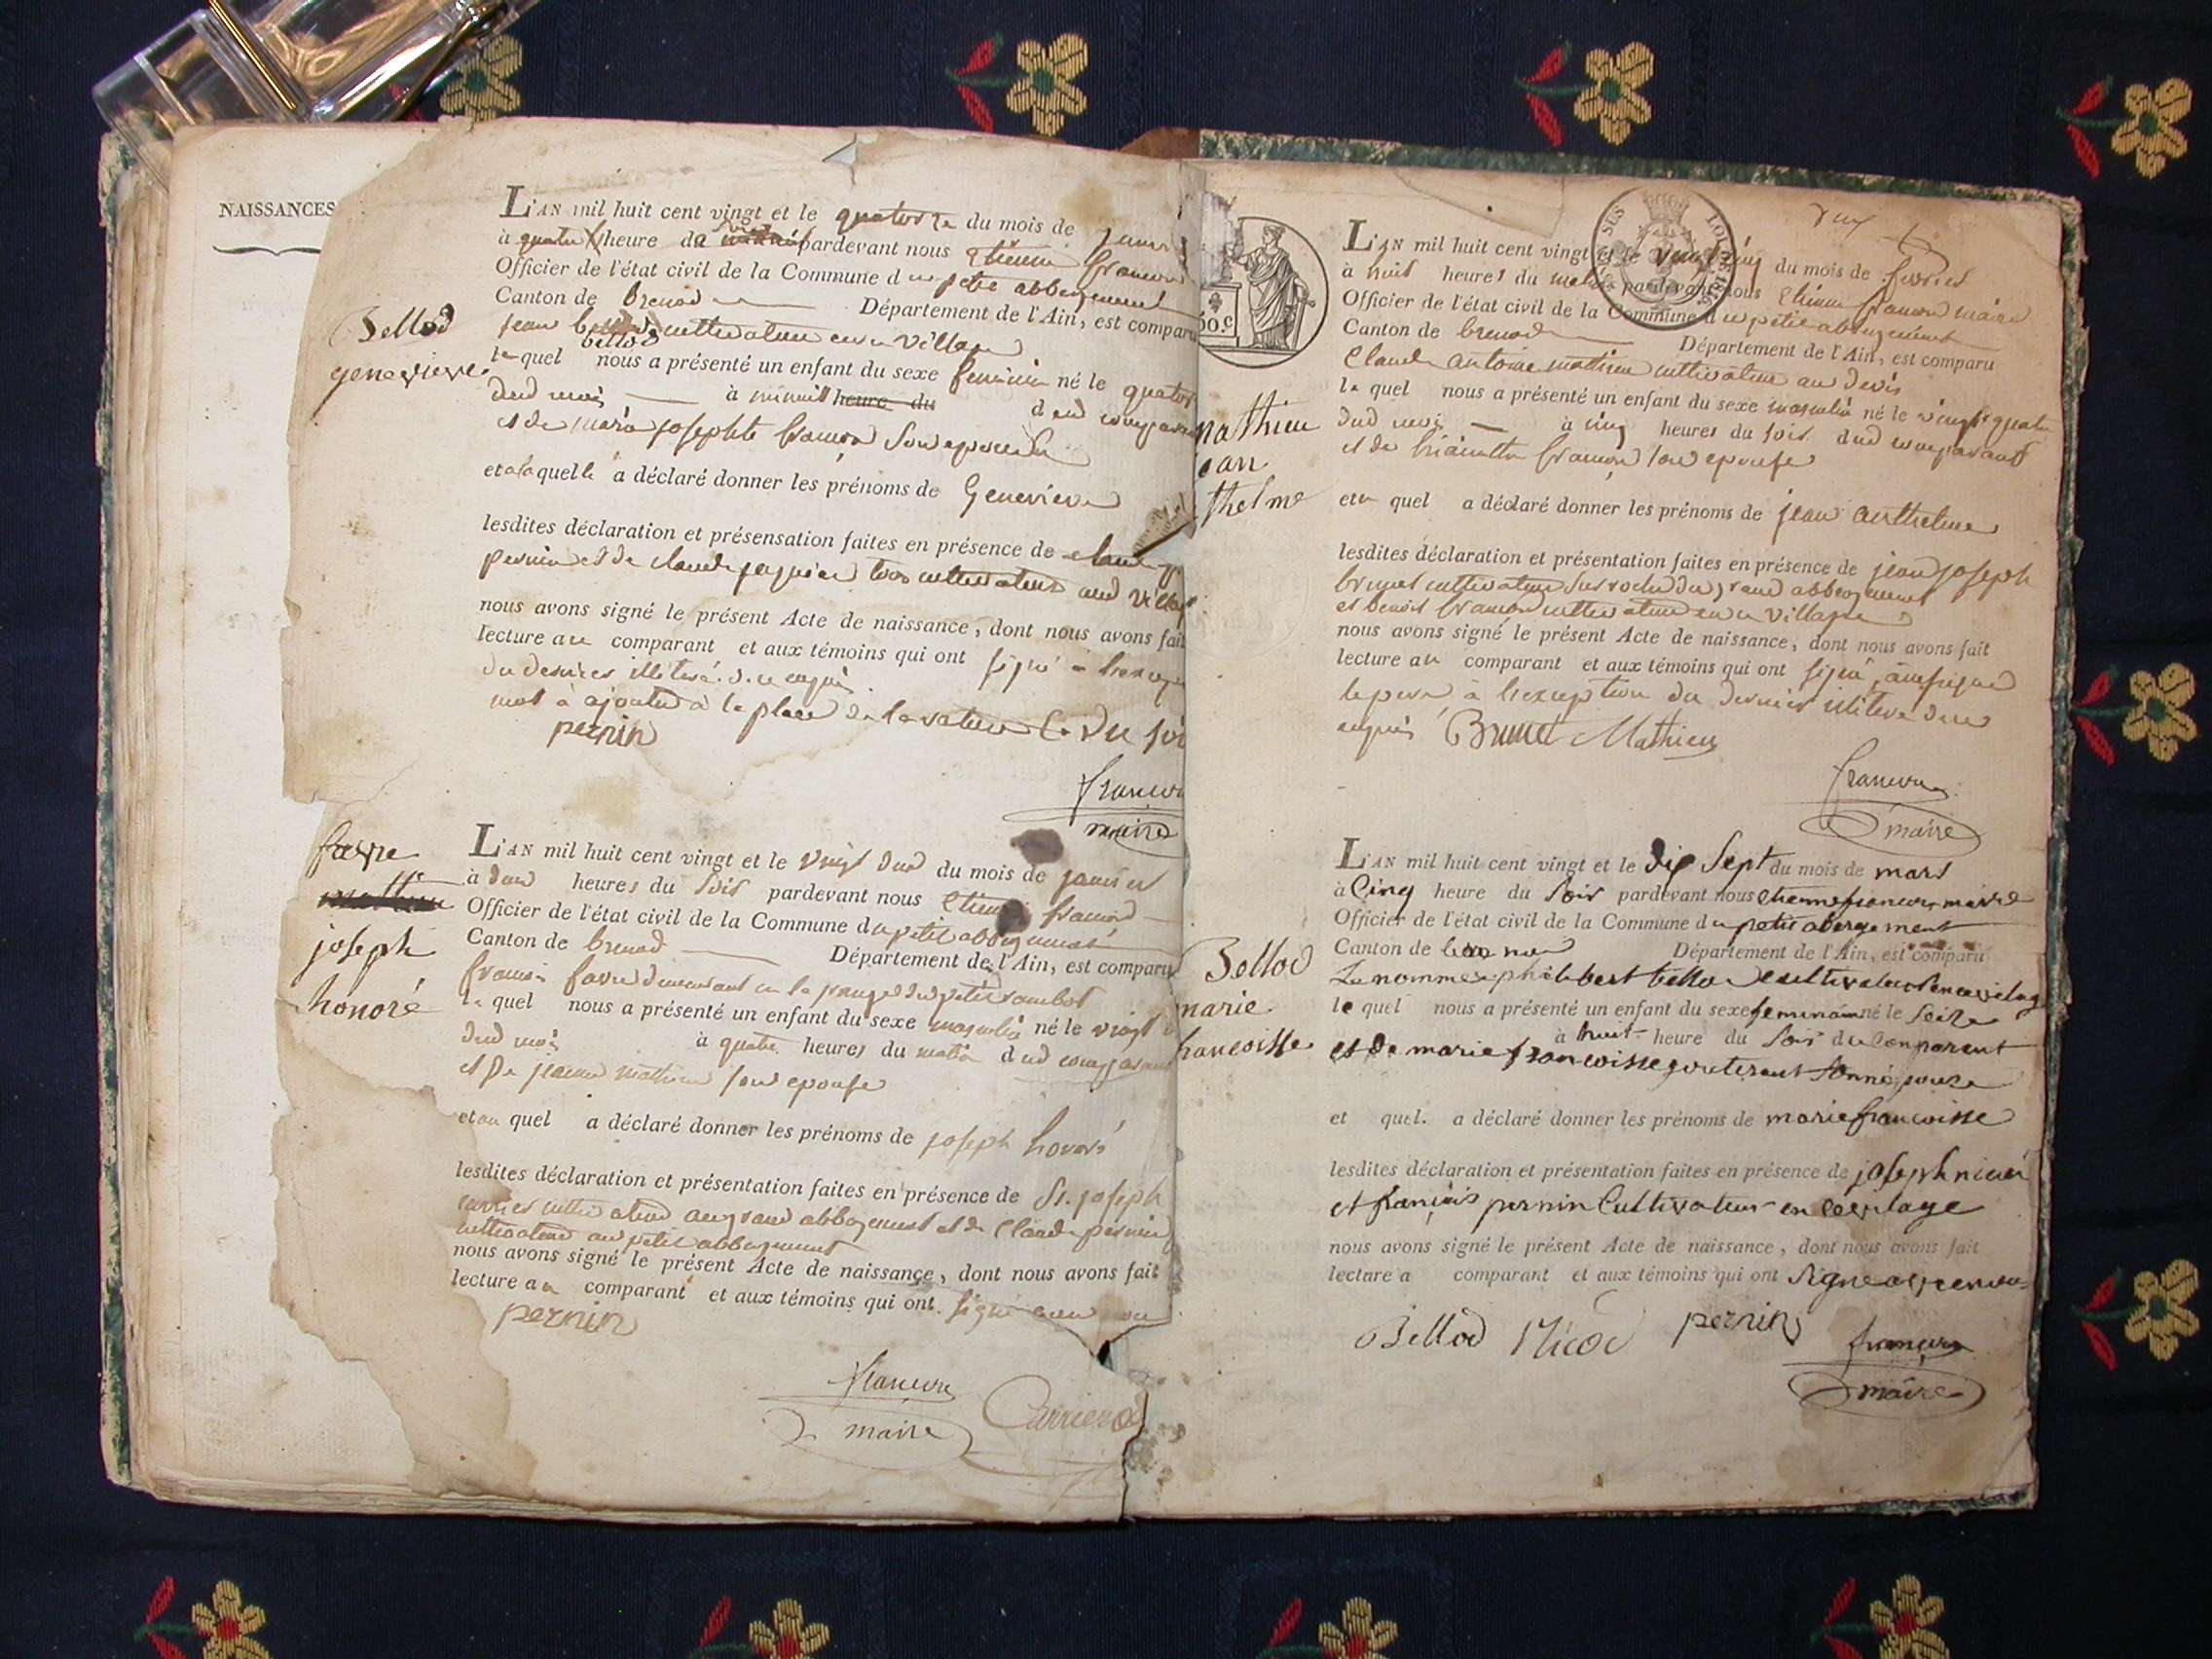 NAISSANCES
Bellod
genevieve
L'AN mil huit cent vingt et le quatorze du mois de
à quatre heure du pardevant nous Etienne francon
Officier de l'état civil de la Commune du petit abbergement
Canton de brenod Département de l'Ain, est comparu
jean bellod cultivateur en ce village
le quel nous a présenté un enfant du sexe feminin né le quator
dud mois à minuit heure du dud comparant
et de marie josephte francon son epouse
et a laquelle a déclaré donner les prénoms de Genevieve
lesdites déclaration et présensation faites en présence de claude
pernin et de claude tous cultivateurs aud village
nous avons signé le présent Acte de naissance, dont nous avons fait
lecture au comparant et aux témoins qui ont signé à
du dernier illiteré de ce enquis
mot à ajouter à la place de la rature du soi
pernin
francon
maire
favre
joseph
honoré
L'AN mil huit cent vingt et le vingt deux du mois de janvier
à deux heures du soir pardevant nous Etienne francon
Officier de l'état civil de la Commune du petit abbergement
Canton de brenod Département de l'Ain, est comparu
francois favre demeurant en la du petit
le quel nous a présenté un enfant du sexe masculin né le vingt
dud mois à quatre heures du matin dud comparant
et de jeanne mathieu son epouse
et au quel a déclaré donner les prénoms de joseph honoré
lesdites déclaration et présentation faites en présence de St. joseph
carrier cultivateur au grand abbergement et de Claude pernin
cultivateur au petit abbergement
nous avons signé le présent Acte de naissance, dont nous avons fait
lecture au comparant et aux témoins qui ont signé avec
pernin
francon
maire
60.c
mathieu
ean
thelme
L'AN mil huit cent vingt et le vingt cinq du mois de fevrier
à huit heures du matin pardevant nous Etienne francon maire
Officier de l'état civil de la Commune du petit abbergement
Canton de brenod Département de l'Ain, est comparu
Claude antoine mathieu cultivateur au devis
le quel nous a présenté un enfant du sexe masculin né le vingt quatre
dud mois à cinq heures du soir dud comparant
et de francon son epouse
et au quel a déclaré donner les prénoms de jean anthelme
lesdites déclaration et présentation faites en présence de jean joseph
brunet cultivateur sur roche du grand abbergement
et benoit francon cultivateur en ce village
nous avons signé le présent Acte de naissance, dont nous avons fait
lecture au comparant et aux témoins qui ont signé
le pere à l'exception du dernier illiteré de ce
enquis Brunet Mathieu
francon
maire
Bellod
marie
francoisse
L'AN mil huit cent vingt et le dix Sept du mois de mars
à Cinq heure du soir pardevant nous etienne francon maire
Officier de l'état civil de la Commune du petit abergement
Canton de Département de l'Ain, est comparu
Le nommé philibert bellod cultivateur en ce vilage
le quel nous a présenté un enfant du sexe feminain né le seize
à huit heure du soir du Conparent
et de marie francoisse son nepouze
et quel. a déclaré donner les prénoms de marie francoisse
lesdites déclaration et présentation faites en présence de joseph
et françois pernin Cultivateur en ce vilage
nous avons signé le présent Acte de naissance, dont nous avons fait
lecture a comparant et aux témoins qui ont signe avec nous
Bellod Nicod pernin
francon
maire